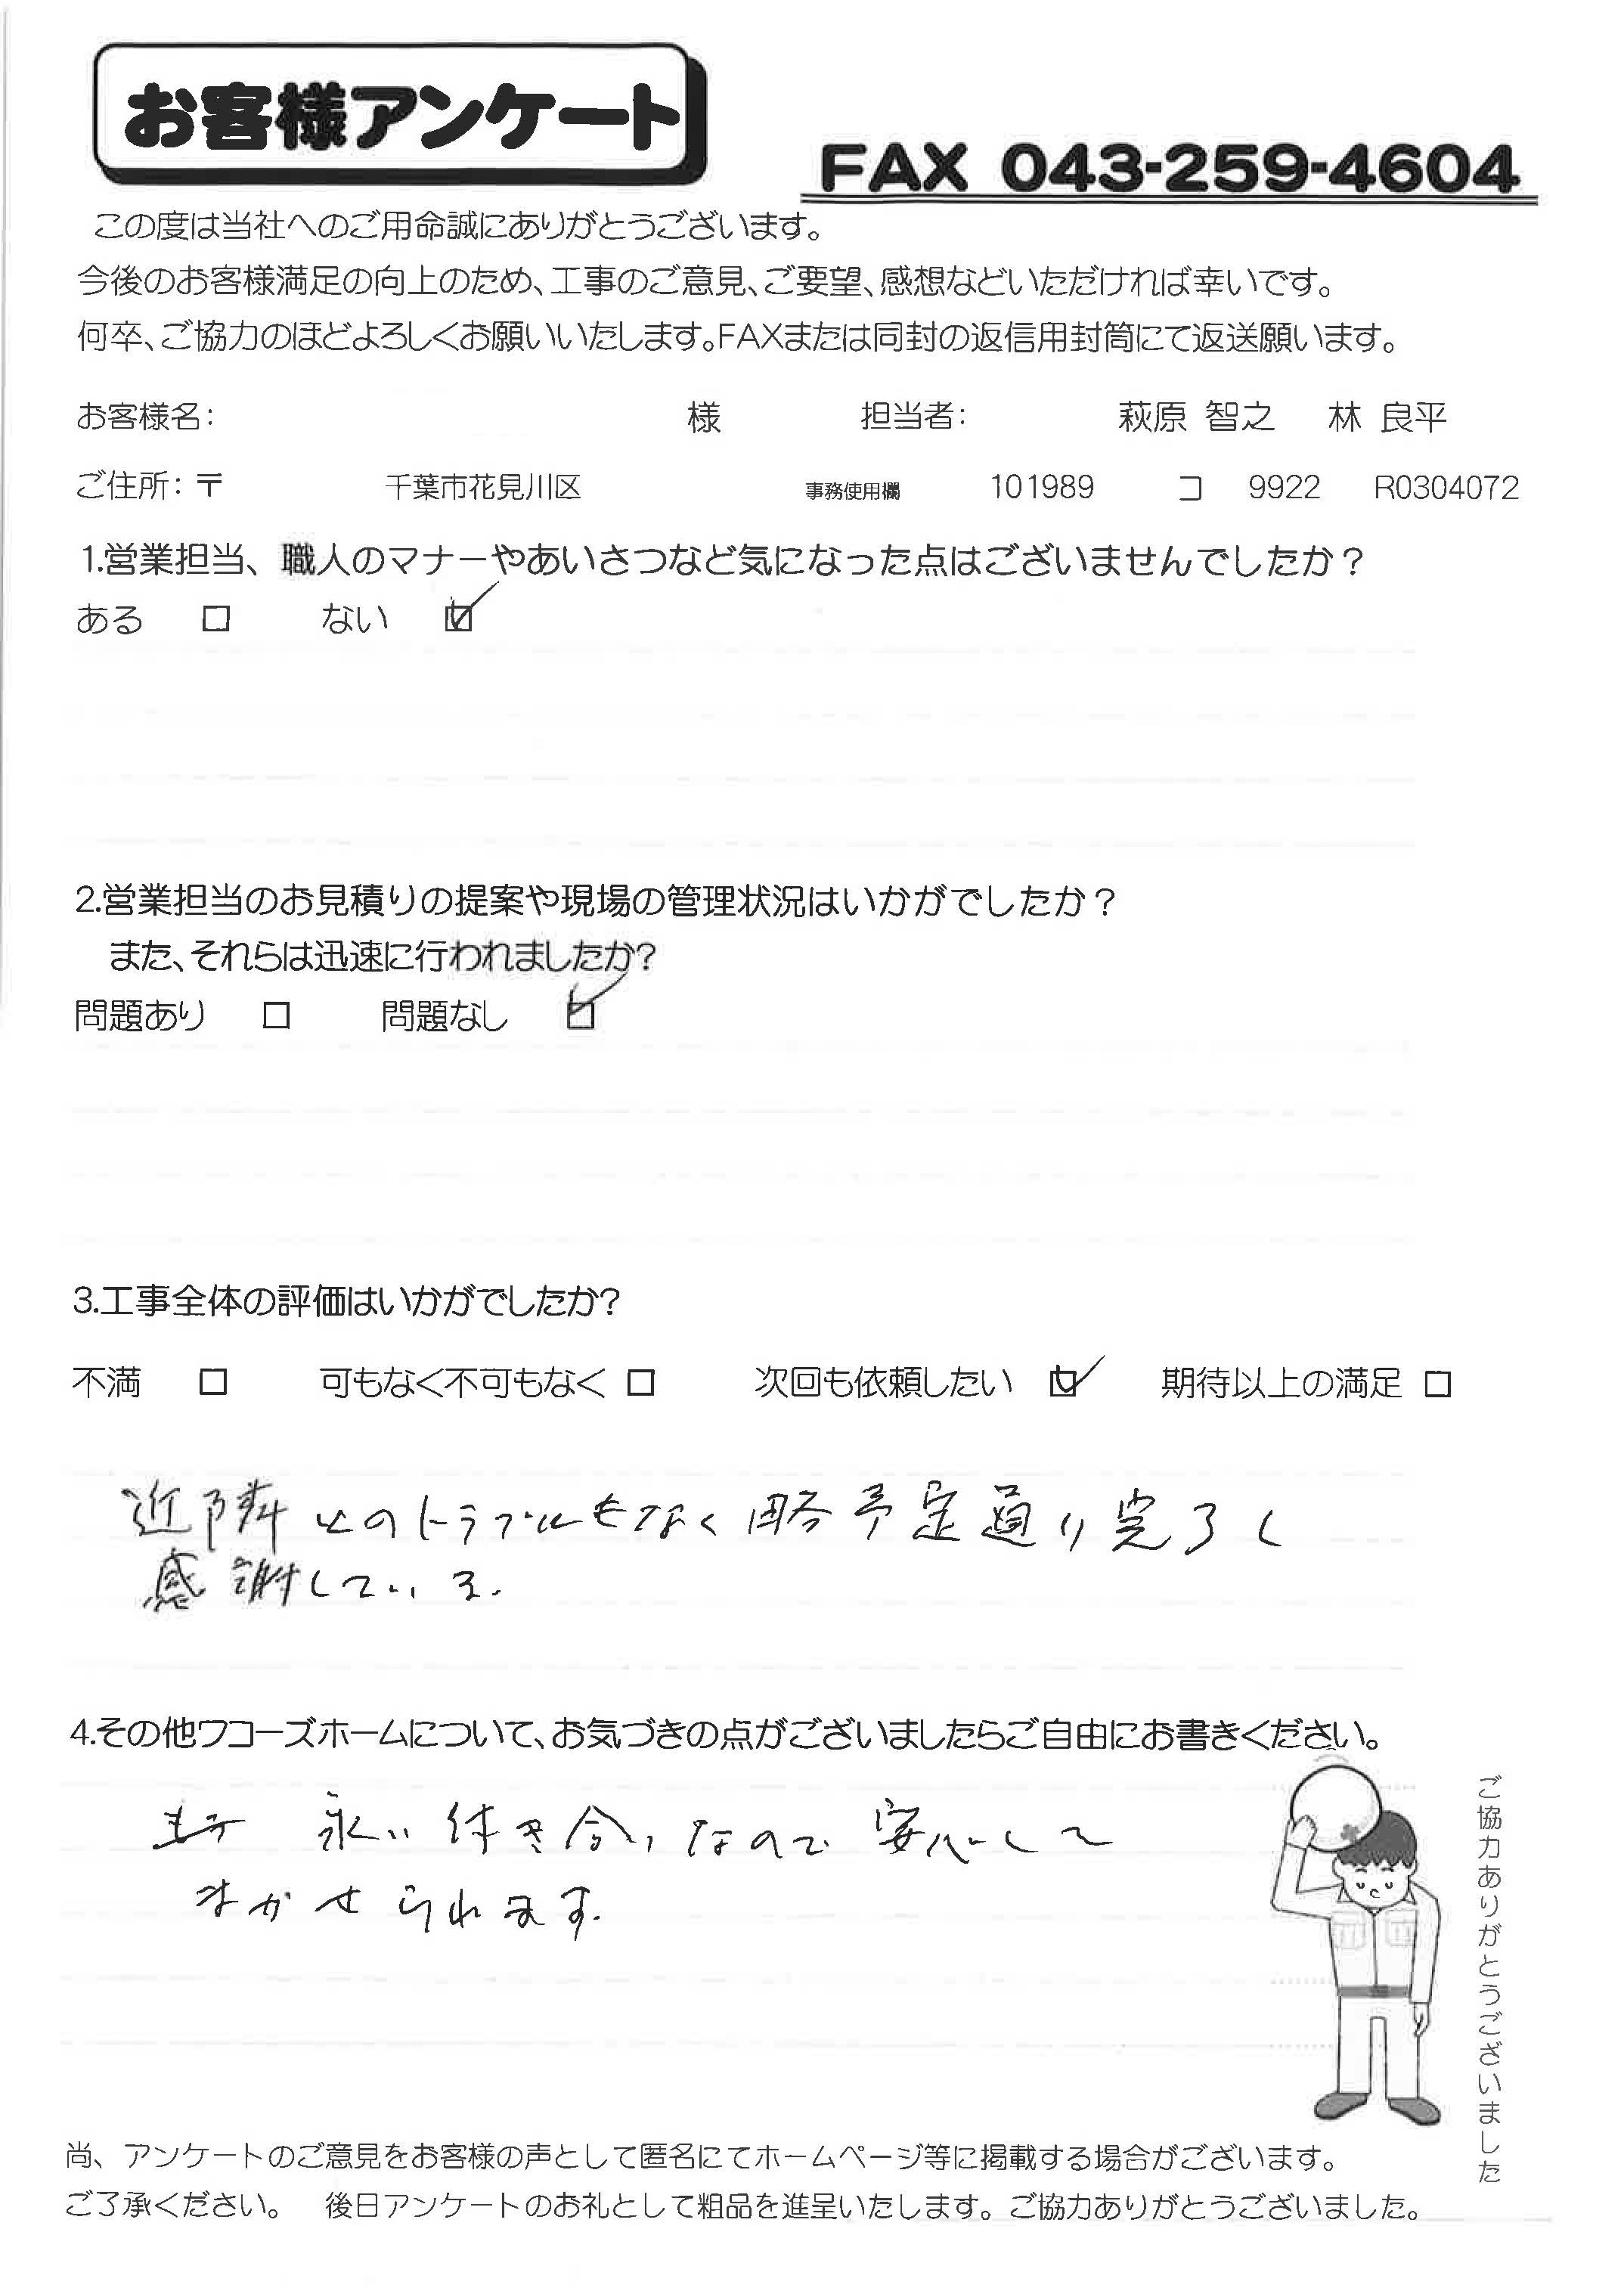 お客様アンケート
FAX 043-259-4604
この度は当社へのご用命誠にありがとうございます。
今後のお客様満足の向上のため、工事のご意見、ご要望、感想などいただければ幸いです。
何卒、ご協力のほどよろしくお願いいたします。FAXまたは同封の返信用封筒にて返送願います。
お客様名: 様 担当者: 萩原 智之 林 良平
ご住所: 〒 千葉市花見川区 事務使用欄 101989 コ 9922 R0304072
1.営業担当、職人のマナーやあいさつなど気になった点はございませんでしたか？
ある □ ない ☑
2.営業担当のお見積りの提案や現場の管理状況はいかがでしたか？
また、それらは迅速に行われましたか?
問題あり □ 問題なし ☑
3.工事全体の評価はいかがでしたか?
不満 □ 可もなく不可もなく □ 次回も依頼したい ☑ 期待以上の満足 □
近隣とのトラブルもなく略予定通り完了し
感謝している.
4.その他ワコーズホームについて、お気づきの点がございましたらご自由にお書きください。
永い付き合いなので安心して
まかせられます.
ご協力ありがとうございました
尚、アンケートのご意見をお客様の声として匿名にてホームページ等に掲載する場合がございます。
ご了承ください。 後日アンケートのお礼として粗品を進呈いたします。ご協力ありがとうございました。